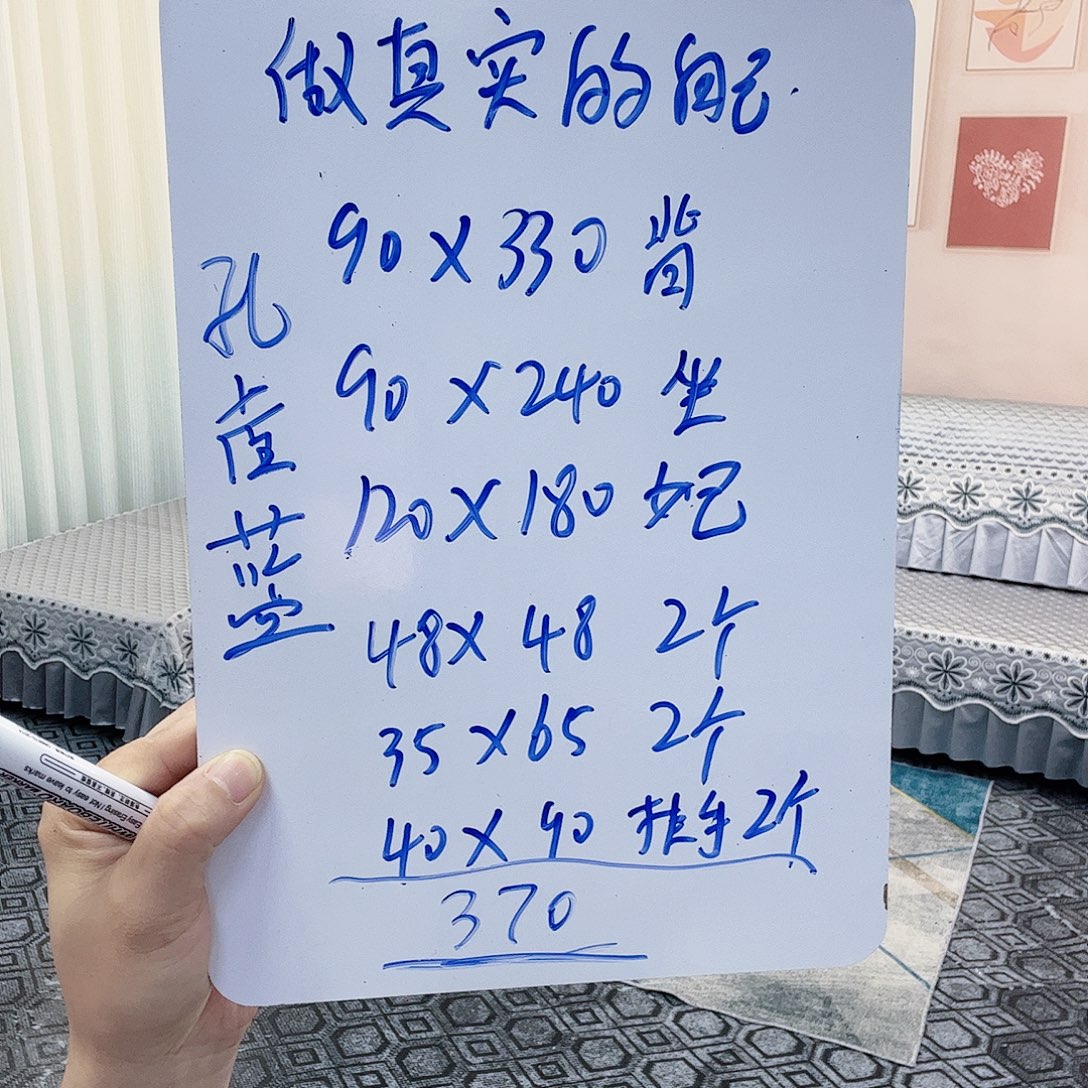 做真实的自己.
孔雀蓝
90X330 背
90X240 坐
120X180 妃
48X48 2个
35X65 2个
40X90 扶手2个
370
Easy Erasing / Not easy to leave marks